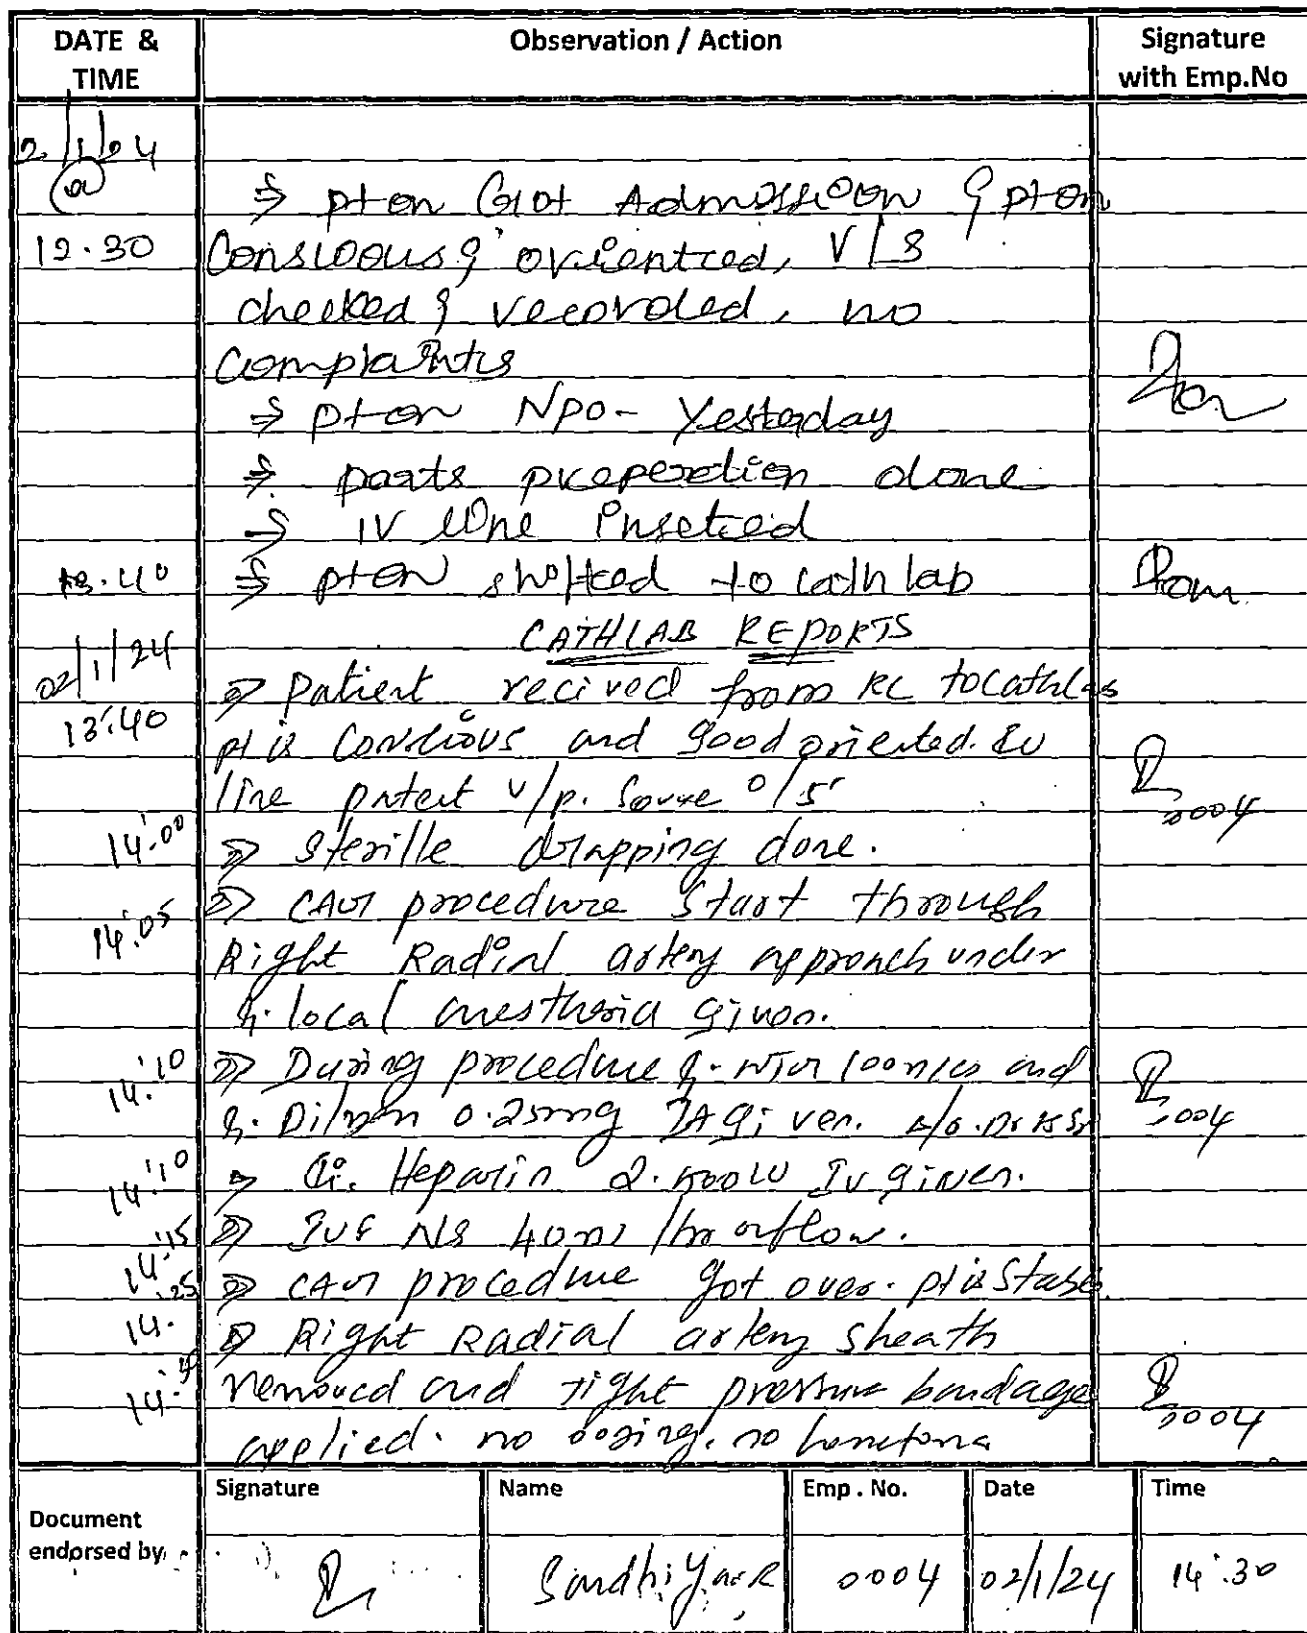 DATE & TIME Observation / Action Signature with Emp.No
2/1/24
@ ⇒ pt on Got Admission & pt on
12.30 Conscious & oriented, V/S
checked & recorded, no
Complaints
⇒ pt on NPO - Yesterday
⇒ parts preperation done
⇒ IV line insetred
13.40 ⇒ pt on shifted to cath lab
CATHLAB REPORTS
02/1/24 ⇒ Patient recived from to cathlab
13:40 pt is Conscious and good oriented. IV
line patent score 0/5
0004
14:00 ⇒ Sterille drapping done.
14:05 ⇒ CAG procedure start through
Right Radial artery approach under
local anesthesia given.
14:10 ⇒ During procedure and
0.25mg IA given.
0004
14:10 ⇒ Heparin IV given.
14:15 ⇒ IVF NS /hr
14.25 ⇒ CAG procedure got over. pt is Stable.
⇒ Right Radial artery sheath
removed and tight pressure bandage
0004
applied. no oozing. no
Document endorsed by Signature Name Emp . No. Date Time
0004 02/1/24 14:30